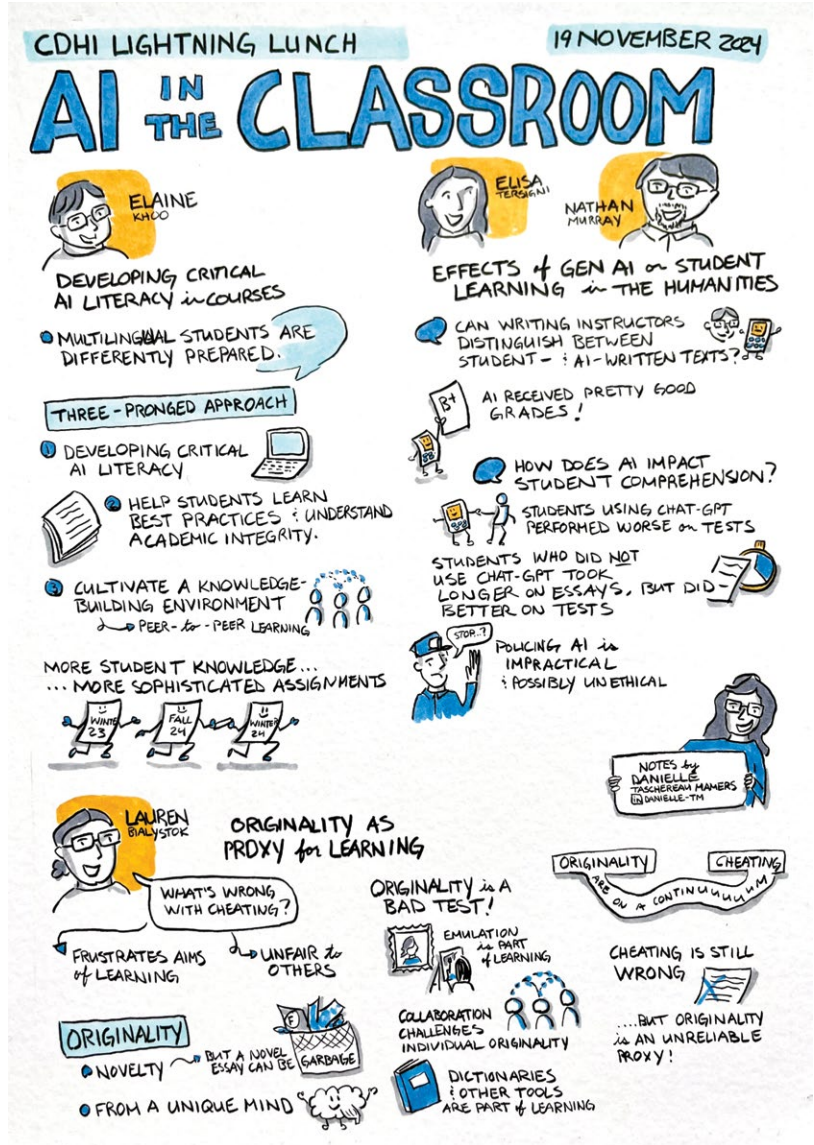 CDHI LIGHTNING LUNCH
19 NOVEMBER 2024
AI IN THE CLASSROOM
ELAINE
KHOO
DEVELOPING CRITICAL
AI LITERACY in COURSES
MULTILINGUAL STUDENTS ARE
DIFFERENTLY PREPARED.
THREE-PRONGED APPROACH
1 DEVELOPING CRITICAL
AI LITERACY
2 HELP STUDENTS LEARN
BEST PRACTICES & UNDERSTAND
ACADEMIC INTEGRITY.
3 CULTIVATE A KNOWLEDGE-
BUILDING ENVIRONMENT
PEER-to-PEER LEARNING
MORE STUDENT KNOWLEDGE...
... MORE SOPHISTICATED ASSIGNMENTS
WINTER
23
FALL
24
WINTER
24
ELISA
TERSIGNI
NATHAN
MURRAY
EFFECTS of GEN AI on STUDENT
LEARNING in THE HUMANITIES
CAN WRITING INSTRUCTORS
DISTINGUISH BETWEEN
STUDENT- & AI-WRITTEN TEXTS?
B+
AI RECEIVED PRETTY GOOD
GRADES!
HOW DOES AI IMPACT
STUDENT COMPREHENSION?
STUDENTS USING CHAT-GPT
PERFORMED WORSE on TESTS
STUDENTS WHO DID NOT
USE CHAT-GPT TOOK
LONGER ON ESSAYS, BUT DID
BETTER ON TESTS
STOP..?
POLICING AI is
IMPRACTICAL
& POSSIBLY UNETHICAL
NOTES by
DANIELLE
TASCHEREAU MAMERS
in DANIELLE-TM
LAUREN
BIALYSTOK
ORIGINALITY AS
PROXY for LEARNING
WHAT'S WRONG
WITH CHEATING?
FRUSTRATES AIMS
of LEARNING
UNFAIR to
OTHERS
ORIGINALITY
NOVELTY
BUT A NOVEL
ESSAY CAN BE
GARBAGE
FROM A UNIQUE MIND
ORIGINALITY is A
BAD TEST!
EMULATION
is PART
of LEARNING
COLLABORATION
CHALLENGES
INDIVIDUAL ORIGINALITY
DICTIONARIES
& OTHER TOOLS
ARE PART of LEARNING
ORIGINALITY
CHEATING
ARE ON A CONTINUUUUUM
CHEATING IS STILL
WRONG
....BUT ORIGINALITY
is AN UNRELIABLE
PROXY!